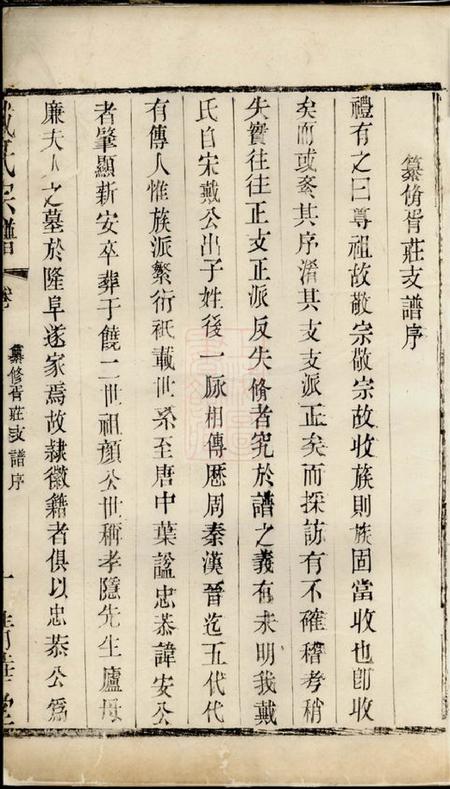 纂脩胥莊支譜序
禮有之曰尊祖故敬宗敬宗故收族則族固當收也卽收
矣而或紊其序淆其支支派正矣而採訪有不確稽考稍
失實往往正支正派反失脩者究於譜之義有未明我戴
氏自宋戴公出子姓後一脉相傳歷周秦漢晉迄五代代
有傳人惟族派繁衍祇載世系至唐中葉謚忠恭諱安公
者肇顯新安卒葬于饒二世祖顔公世稱孝隱先生廬母
廉夫人之墓於隆阜遂家焉故隷徽籍者俱以忠恭公爲
戴氏宗譜
卷
纂修胥莊支譜序
一